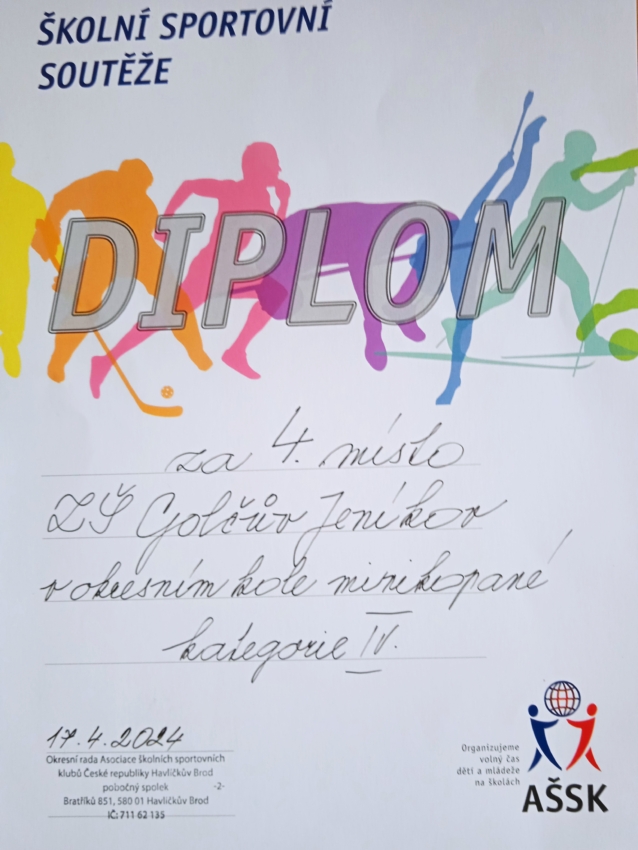 ŠKOLNÍ SPORTOVNÍ
SOUTĚŽE
DIPLOM
za 4. místo
ZŠ Golčův Jeníkov
v okresním kole minikopané
kategorie IV.
17.4.2024
Okresní rada Asociace školních sportovních
klubů České republiky Havlíčkův Brod
pobočný spolek -2-
Bratříků 851, 580 01 Havlíčkův Brod
IČ: 711 62 135
Organizujeme
volný čas
dětí a mládeže
na školách
AŠSK